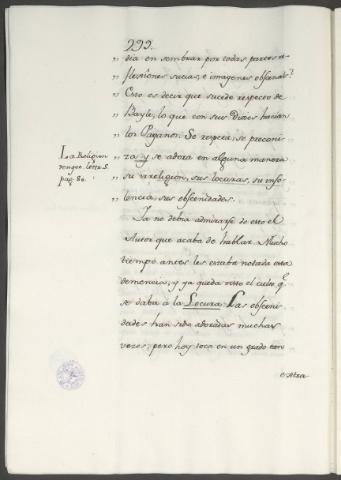 292.
" dia en sembrar por todas partes re-
" flexiônes sucias, è imagenes obscenas.
" Esto es decir que sucede respecto de
" Bayle, lo que con sus Dioses hacian
" los Paganos. Se respeta, se preconi-
" za, y se adora en alguna manera
" su irreligion, sus locuras, su inso-
" lencia, sus obscenidades.
La Religion
vengée tom. 5.
pag. 80.
Ya no debia admirarse de esto el
Autor que acaba de hablar. Mucho
tiempo antes les estaba notada esta
demencia, y ya queda visto el culto q.e
se daba à la Locura. Las obsceni-
dades han sido adoradas muchas
veces; pero hoy toca en un grado